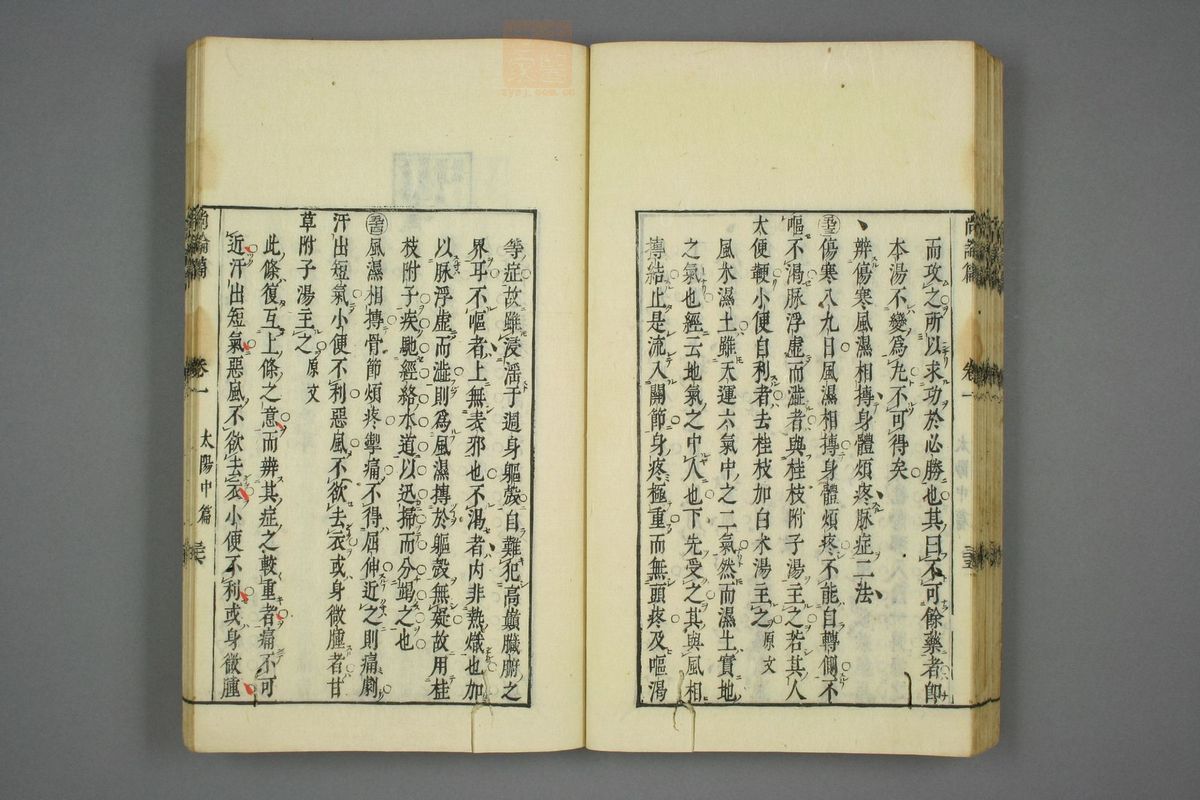 而攻之所以求功於必勝也其曰不可餘藥者即
本湯不變為丸不可得矣
辨傷寒風濕相摶身體煩疼脉症二法
傷寒八九日風濕相摶身體煩疼不能自轉側不
嘔不渴脉浮虛而澁者與桂枝附子湯主之若其人
大便鞕小便自利者去桂枝加白朮湯主之原文
風水濕土雖天運六氣中之二氣然而濕土實地
之氣也經云地氣之中人也下先受之其與風相
摶結止是流入關節身疼極重而無頭疼及嘔渴
尚論篇 卷一 太陽中篇
等症故雖浸淫于週身軀殼自難犯高巔臟腑之
界耳不嘔者上無表邪也不渴者內非熱熾也加
以脉浮虛而澁則為風濕摶於軀殼無疑故用桂
枝附子疾馳經絡水道以迅掃而分竭之也
風濕相摶骨節煩疼掣痛不得屈伸近之則痛劇
汗出短氣小便不利惡風不欲去衣或身微腫者甘
草附子湯主之原文
此條復互上條之意而辨其症之較重者痛不可
近汗出短氣惡風不欲去衣小便不利或身微腫
尚論篇 卷一 太陽中篇